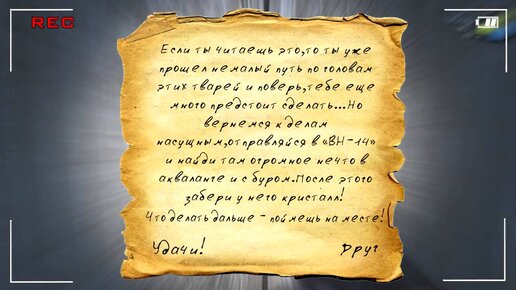 REC
Если ты читаешь это,то ты уже
прошел немалый путь по головам
этих тварей и поверь,тебе еще
много предстоит сделать...Но
вернемся к делам
насущным,отправляйся в «ВН-14»
и найди там огромное нечто в
акваланге и с буром.После этого
забери у него кристалл!
Что делать дальше - поймешь на месте!
Удачи! Друг